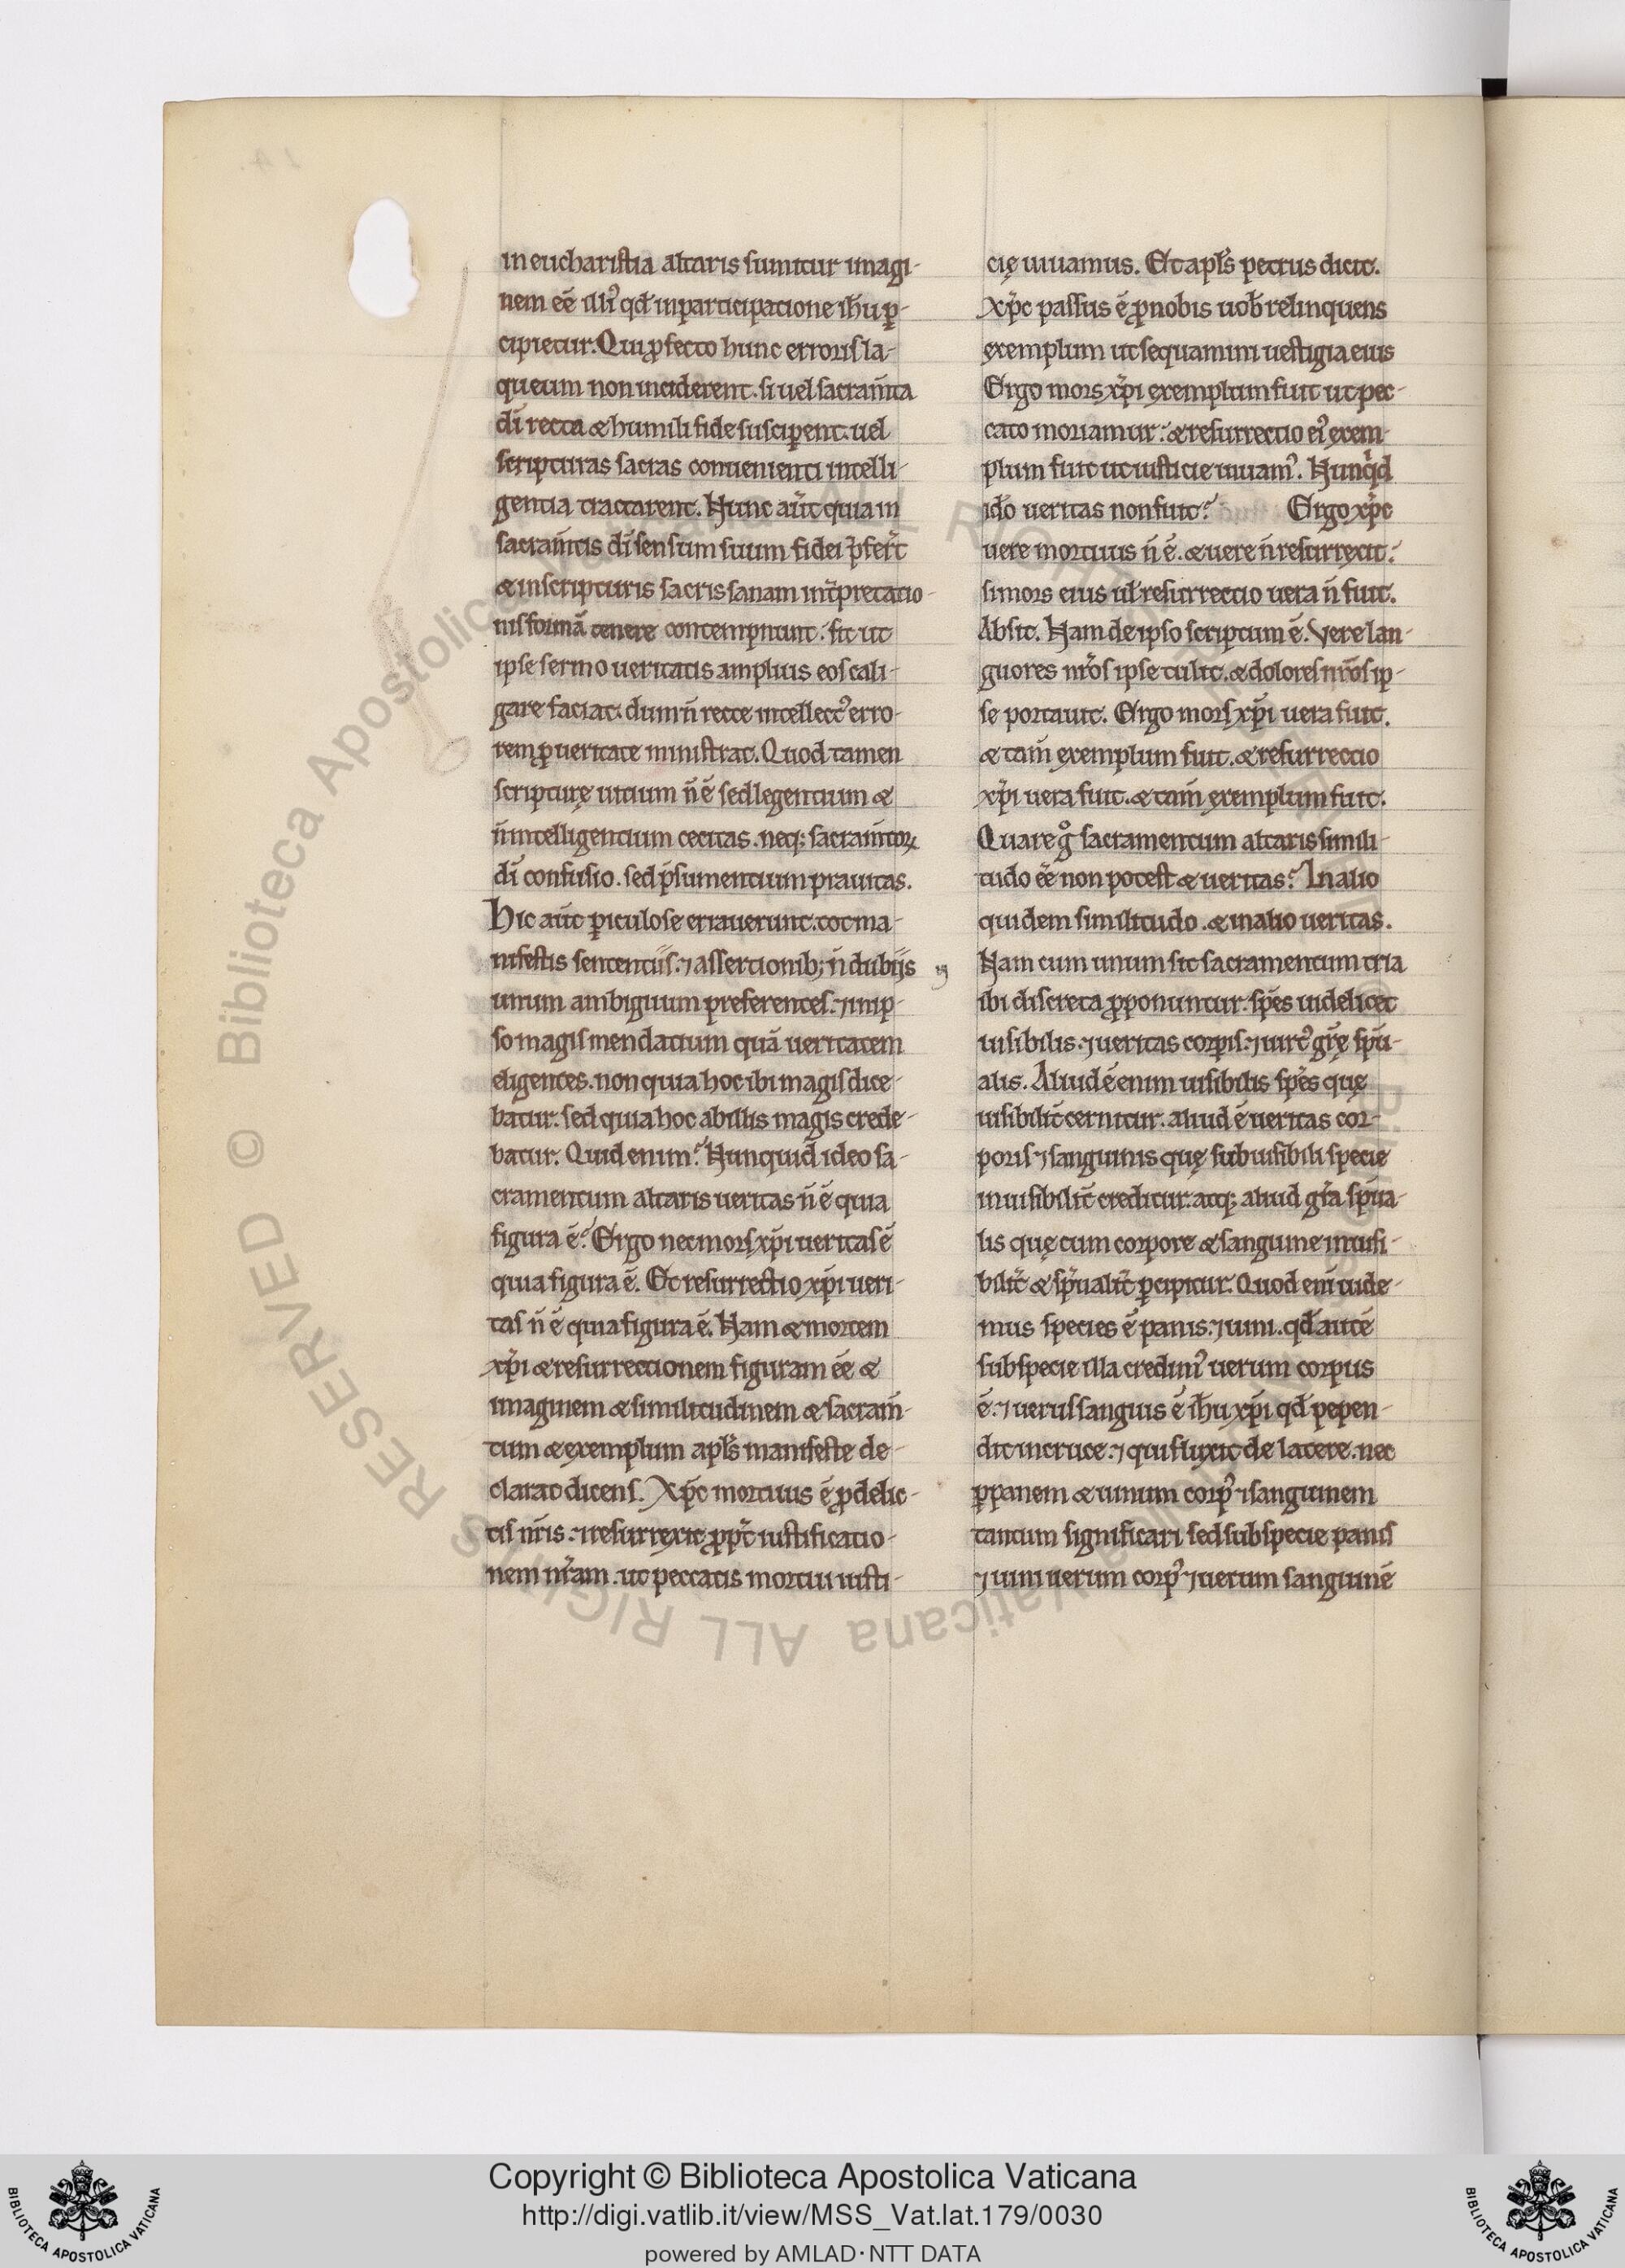 in eucharistia altaris sumitur imagi-
nem eē̄ illiꝰ qđ in participatione ih̄u p̱-
cipietur. Qui ꝓfecto hunc erroris la-
queum non inciderent. si uel sacram̄ta
dī recta & humili fide susciperent. uel
scripturas sacras conuenienti intelli-
gentia tractarent. Nunc aūt quia in
sacram̄tis dī sensum suum fidei p̄fer̄t
& in scripturis sacris sanam int̄pretatio-
nis formā tenere contempnunt. fit ut
ipse sermo ueritatis amplius eos cali-
gare faciat. dum n̄ recte intellectꝰ erro-
rem ꝓ ueritate ministrat. Quod tamen
scripturę uitium n̄ ē sed legentium &
n̄ intelligentium cecitas. neq; sacram̄toꝝ
dī confusio. sed p̄sumentium prauitas.
Hic aūt ꝑiculose errauerunt. tot ma-
nifestis sententiis. ⁊ assertionib; n̄ dubijs
unum ambiguum preferentes. ⁊ in ip-
so magis mendatium quā ueritatem
eligentes. non quia hoc ibi magis dice-
batur. sed quia hoc ab illis magis crede-
batur. Quid enim? Nunquid ideo sa-
cramentum altaris ueritas n̄ ē quia
figura ē? Ergo nec mors xp̄i ueritas ē
quia figura ē. Et resurrectio xp̄i ueri-
tas n̄ ē quia figura ē. Nam & mortem
xp̄i & resurrectionem figuram eē &
imaginem & similitudinem & sacram̄-
tum & exemplum apl̄s manifeste de-
clarat dicens. Xp̄c mortuus ē ꝓ delic-
tis nr̄is. ⁊ resurrexit ꝓpt̄ iustificatio-
nem nr̄am. ut peccatis mortui iusti-
cię uiuamus. Et apl̄s petrus dicit.
Xp̄c passus ē ꝓ nobis uob̄ relinquens
exemplum ut sequamini uestigia eius
Ergo mors xp̄i exemplum fuit ut pec-
cato moriamur. & resurrectio eiꝰ exem-
plum fuit ut iusticie uiuamꝰ. Nunqͥd
id̄o ueritas non fuit? Ergo xp̄c
uere mortuus n̄ ē. & uere n̄ resurrexit.
si mors eius ul̄ resurrectio uera n̄ fuit.
Absit. Nam de ipso scriptum ē. Vere lan-
guores nr̄os ipse tulit. & dolores nr̄os ip-
se portauit. Ergo mors xp̄i uera fuit.
& tam̄ exemplum fuit. & resurrectio
xp̄i uera fuit. & tam̄ exemplum fuit.
Quare gͦ sacramentum altaris simili-
tudo eē non potest & ueritas? In alio
quidem similitudo. & in alio ueritas.
Nam cum unum sit sacramentum tria
ibi discreta ꝓponuntur. sp̄es uidelicet
uisibilis. ⁊ ueritas corꝑis. ⁊ uirtꝰ gr̄ę sp̄u-
alis. Aliud ē enim uisibilis sp̄es quę
uisibilit̄ cernitur. aliud ē ueritas cor-
poris ⁊ sanguinis quę sub uisibili specie
inuisibilit̄ creditur. atq; aliud gr̄a sp̄ua-
lis quę cum corpore & sanguine inuisi-
bilit̄ & sp̄ualit̄ ꝑcipitur. Quod eni̅ uide-
mus species ē panis. ⁊ uini. qđ autē
sub specie illa credimꝰ uerum corpus
ē. ⁊ uerus sanguis ē ih̄u xp̄i qđ pepen-
dit in cruce. ⁊ qui fluxit de latere. nec
ꝑ panem & uinum corpꝰ ⁊ sanguinem
tantum significari sed sub specie panis
⁊ uini uerum corpꝰ ⁊ uerum sanguinē
© Biblioteca Apostolica Vaticana ALL RIGHTS RESERVED
Copyright © Biblioteca Apostolica Vaticana
http://digi.vatlib.it/view/MSS_Vat.lat.179/0030
powered by AMLAD·NTT DATA
BIBLIOTECA APOSTOLICA VATICANA
BIBLIOTECA APOSTOLICA VATICANA